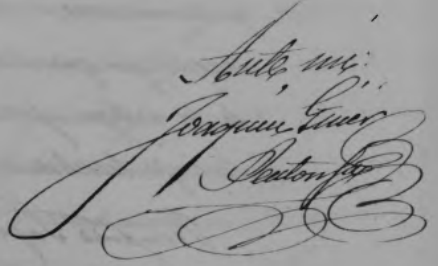 Ante mi:
Joaquin Giner
Santonja